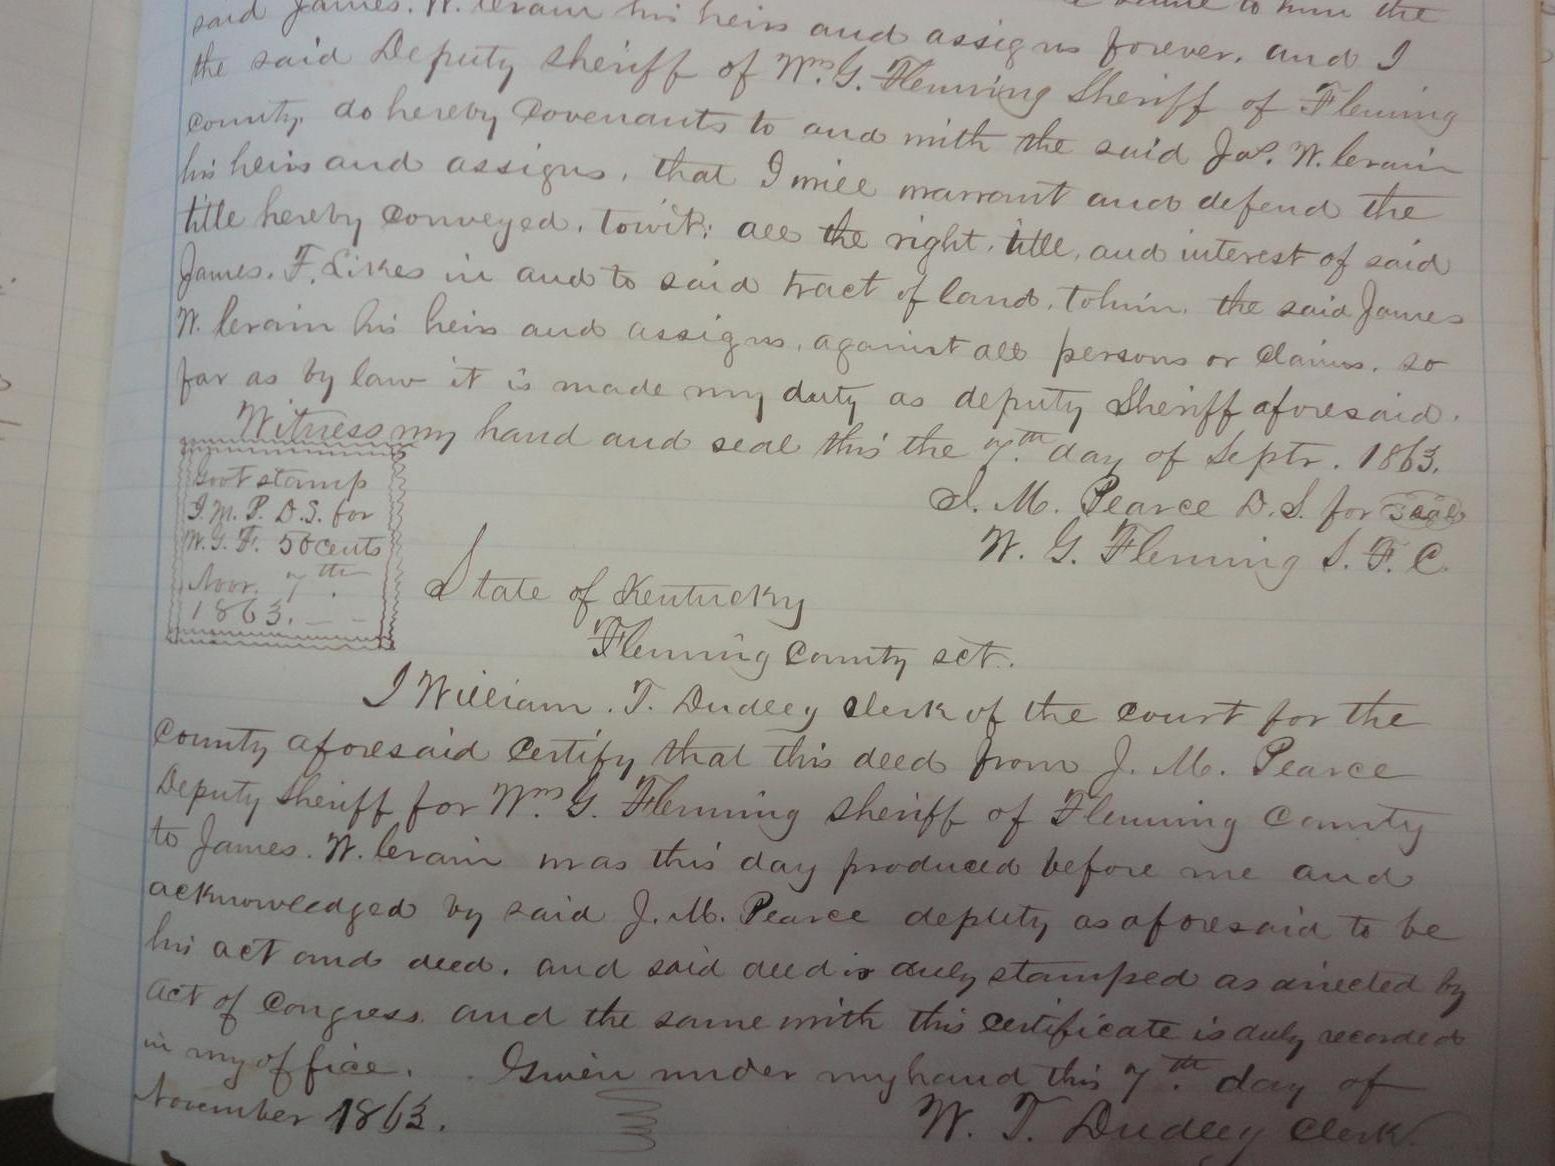 said James. W. Crain his heirs and assigns forever. and I
the said Deputy Sheriff of Wm. G. Fleming Sheriff of Fleming
County do hereby Covenants to and with the said Jas. W. Crain
his heirs and assigns, that I will warrant and defend the
title hereby Conveyed, towit; all the right, title, and interest of said
James. F. Likes in and to said tract of land, to him, the said James
W. Crain his heirs and assigns, against all persons or Claims, so
far as by law it is made my duty as deputy Sheriff aforesaid.
Witness my hand and seal this the 7th. day of Septr. 1863.
J. M. Pearce D. S. for Seal
W. G. Fleming S. F. C.
Govt stamp
J. M. P. D. S. for
W. G. F. 50 cents
Novr. 7th.
1863.
State of Kentucky
Fleming County sct.
I William. T. Dudley Clerk of the Court for the
County aforesaid Certify that this deed from J. M. Pearce
Deputy Sheriff for Wm. G. Fleming Sheriff of Fleming County
to James. W. Crain was this day produced before me and
acknowledged by said J. M. Pearce deputy as aforesaid to be
his act and deed, and said deed is duly stamped as directed by
Act of Congress and the same with this Certificate is duly recorded
in my office. Given under my hand this 7th. day of
November 1863.
W. T. Dudley Clerk